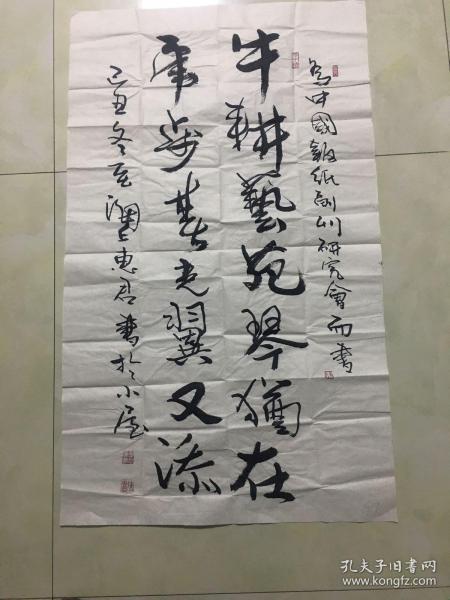 為中國報紙副刊研究會而書
牛耕藝苑琴猶在
虎步春光翼又添
己丑冬至潤上惠君書於小屋
孔夫子旧书网
www.kongfz.com